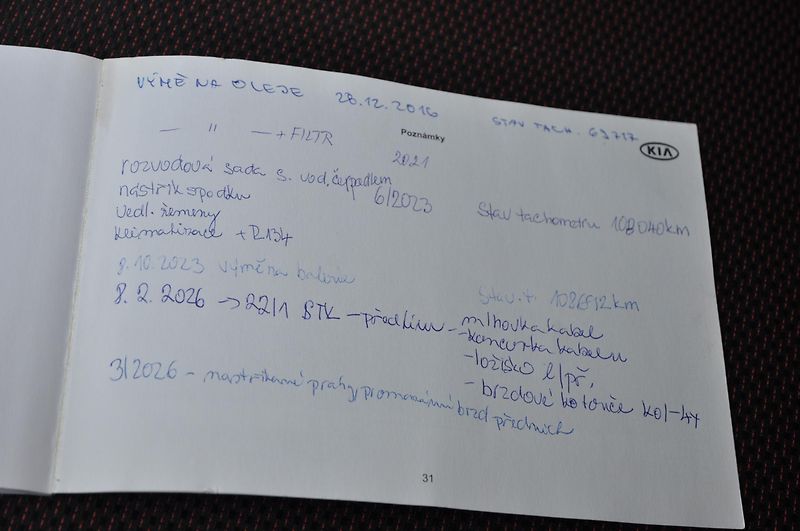 VÝMĚNA OLEJE 28.12.2016 STAV TACH. 63717
— " — + FILTR Poznámky KIA
2021
rozvodová sada s. vod. čerpadlem
nástřik spodku 6/2023 Stav tachometru 108040km
vedl. řemeny
klimatizace + R134
8.10.2023 výměna baterie Stav. t. km
8. 2. 2026 → 22/1 STK – předkium – mlhovka kabel
– koncovka kabelu
– ložisko l/př,
– brzdové kotouče kol – 4x
3/2026 – nastříkané prahy, promazání brzd předních
31